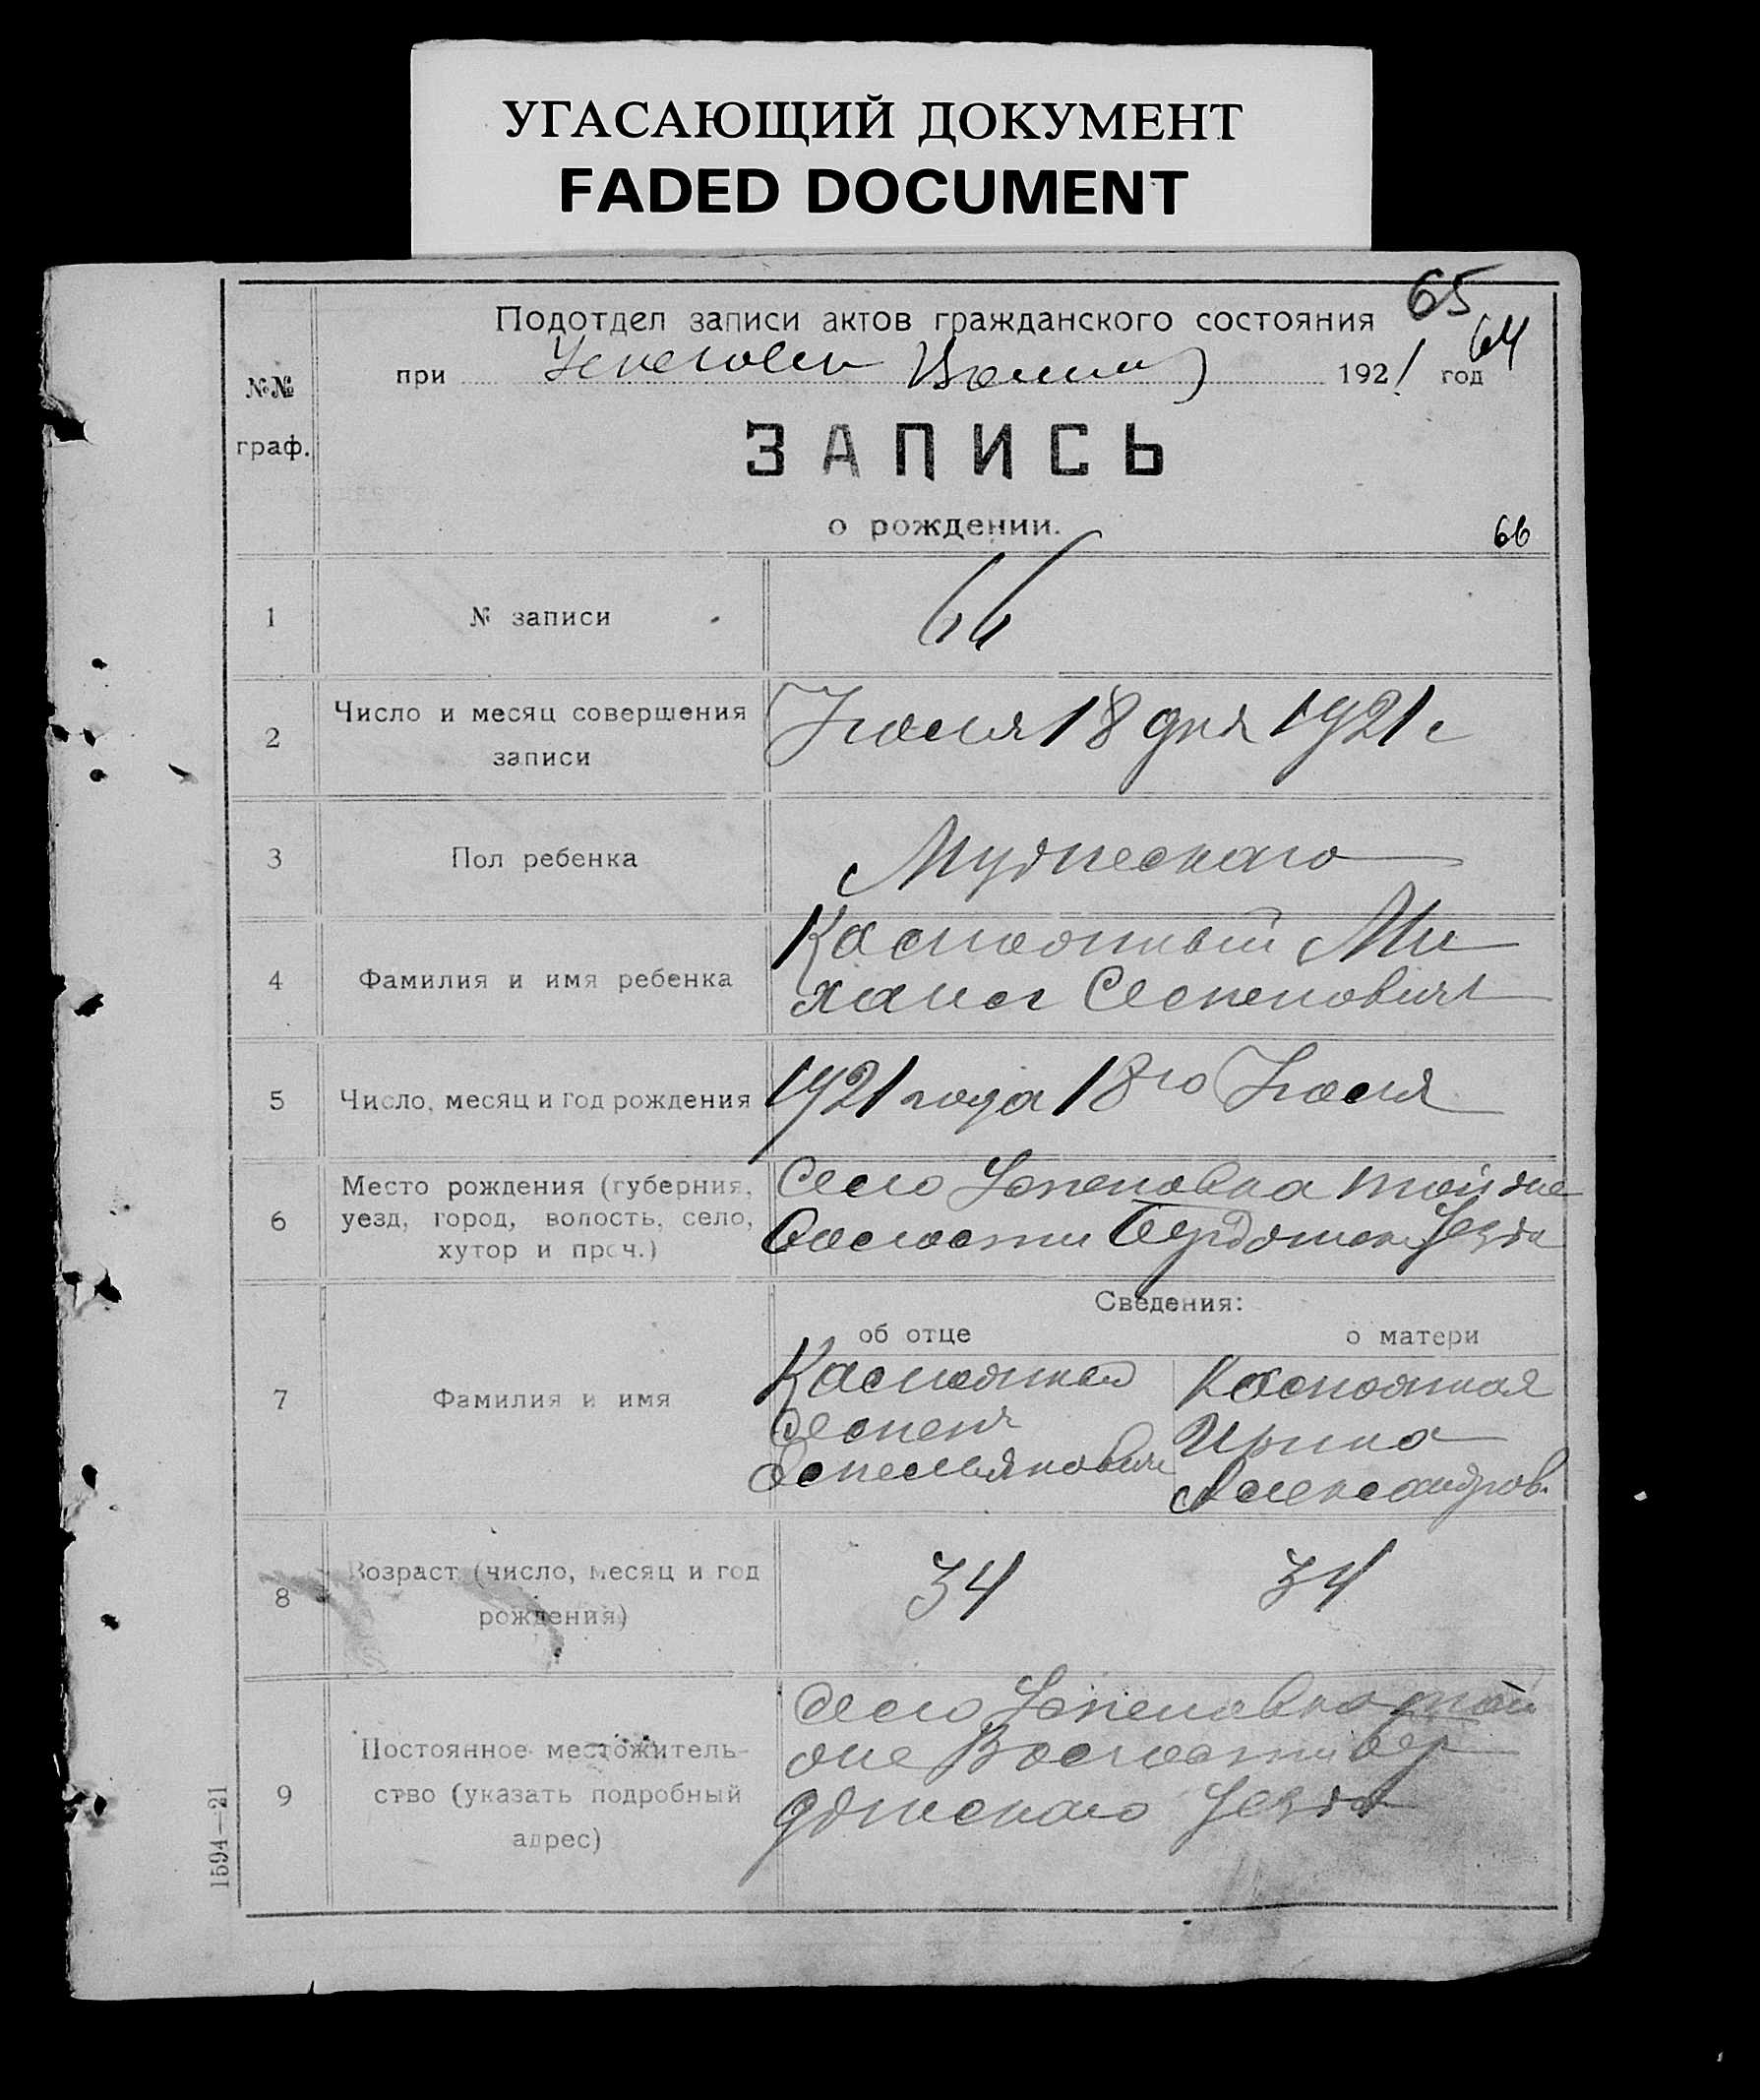 УГАСАЮЩИЙ ДОКУМЕНТ
FADED DOCUMENT
65
64
Подотдел записи актов гражданского состояния
при 1921 год
№№
граф.
ЗАПИСЬ
о рождении.
66
1 № записи 66
2 Число и месяц совершения
записи
Июля 18 дня 1921 г
3 Пол ребенка Мужескаго
4 Фамилия и имя ребенка
Ми
хаил Семенович
5 Число, месяц и год рождения 1921 года 18го Июля
6 Место рождения (губерния,
уезд, город, волость, село,
хутор и проч.)
Село той же
Волости Уезда
Сведения:
об отце о матери
7 Фамилия и имя
Семен Ирина
Емельянович Александров.
8 Возраст (число, месяц и год
рождения)
34 34
9 Постоянное местожитель-
ство (указать подробный
адрес)
Село той
же Волости Бер
дянскаго Уезда
1594—21